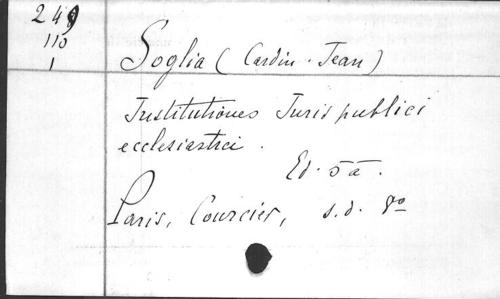 249
110
1
Soglia (Cardin. Jean)
Institutiones Juris publici
ecclesiastici.
Ed. 5a.
Paris, Courcier, s.d. 8o